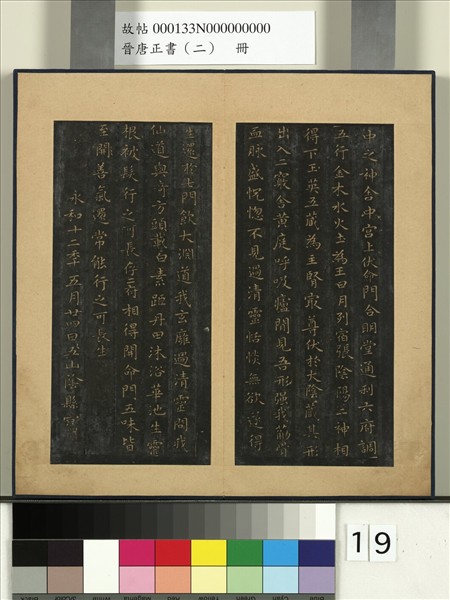 故帖 000133N000000000
晉唐正書（二） 冊
中之神舍中宮上伏命門合明堂通利六府調
五行金木水火土為王日月列宿張陰陽二神相
得下玉英五藏為主腎㝡尊伏於大陰藏其形
出入二竅舍黃庭呼吸廬間見吾形强我筋骨
血脉盛怳惚不見過清靈恬惔無欲遂得
生還於七門飲大淵道我玄膺過清靈問我
仙道與奇方頭載白素距丹田沐浴華池生靈
根被髮行之可長存二府相得開命門五味皆
至開善氣還常能行之可長生
永和十二年五月廿四日五山陰縣寫
19
Black 3/Color White Magenta Red Yellow Green Cyan Blue